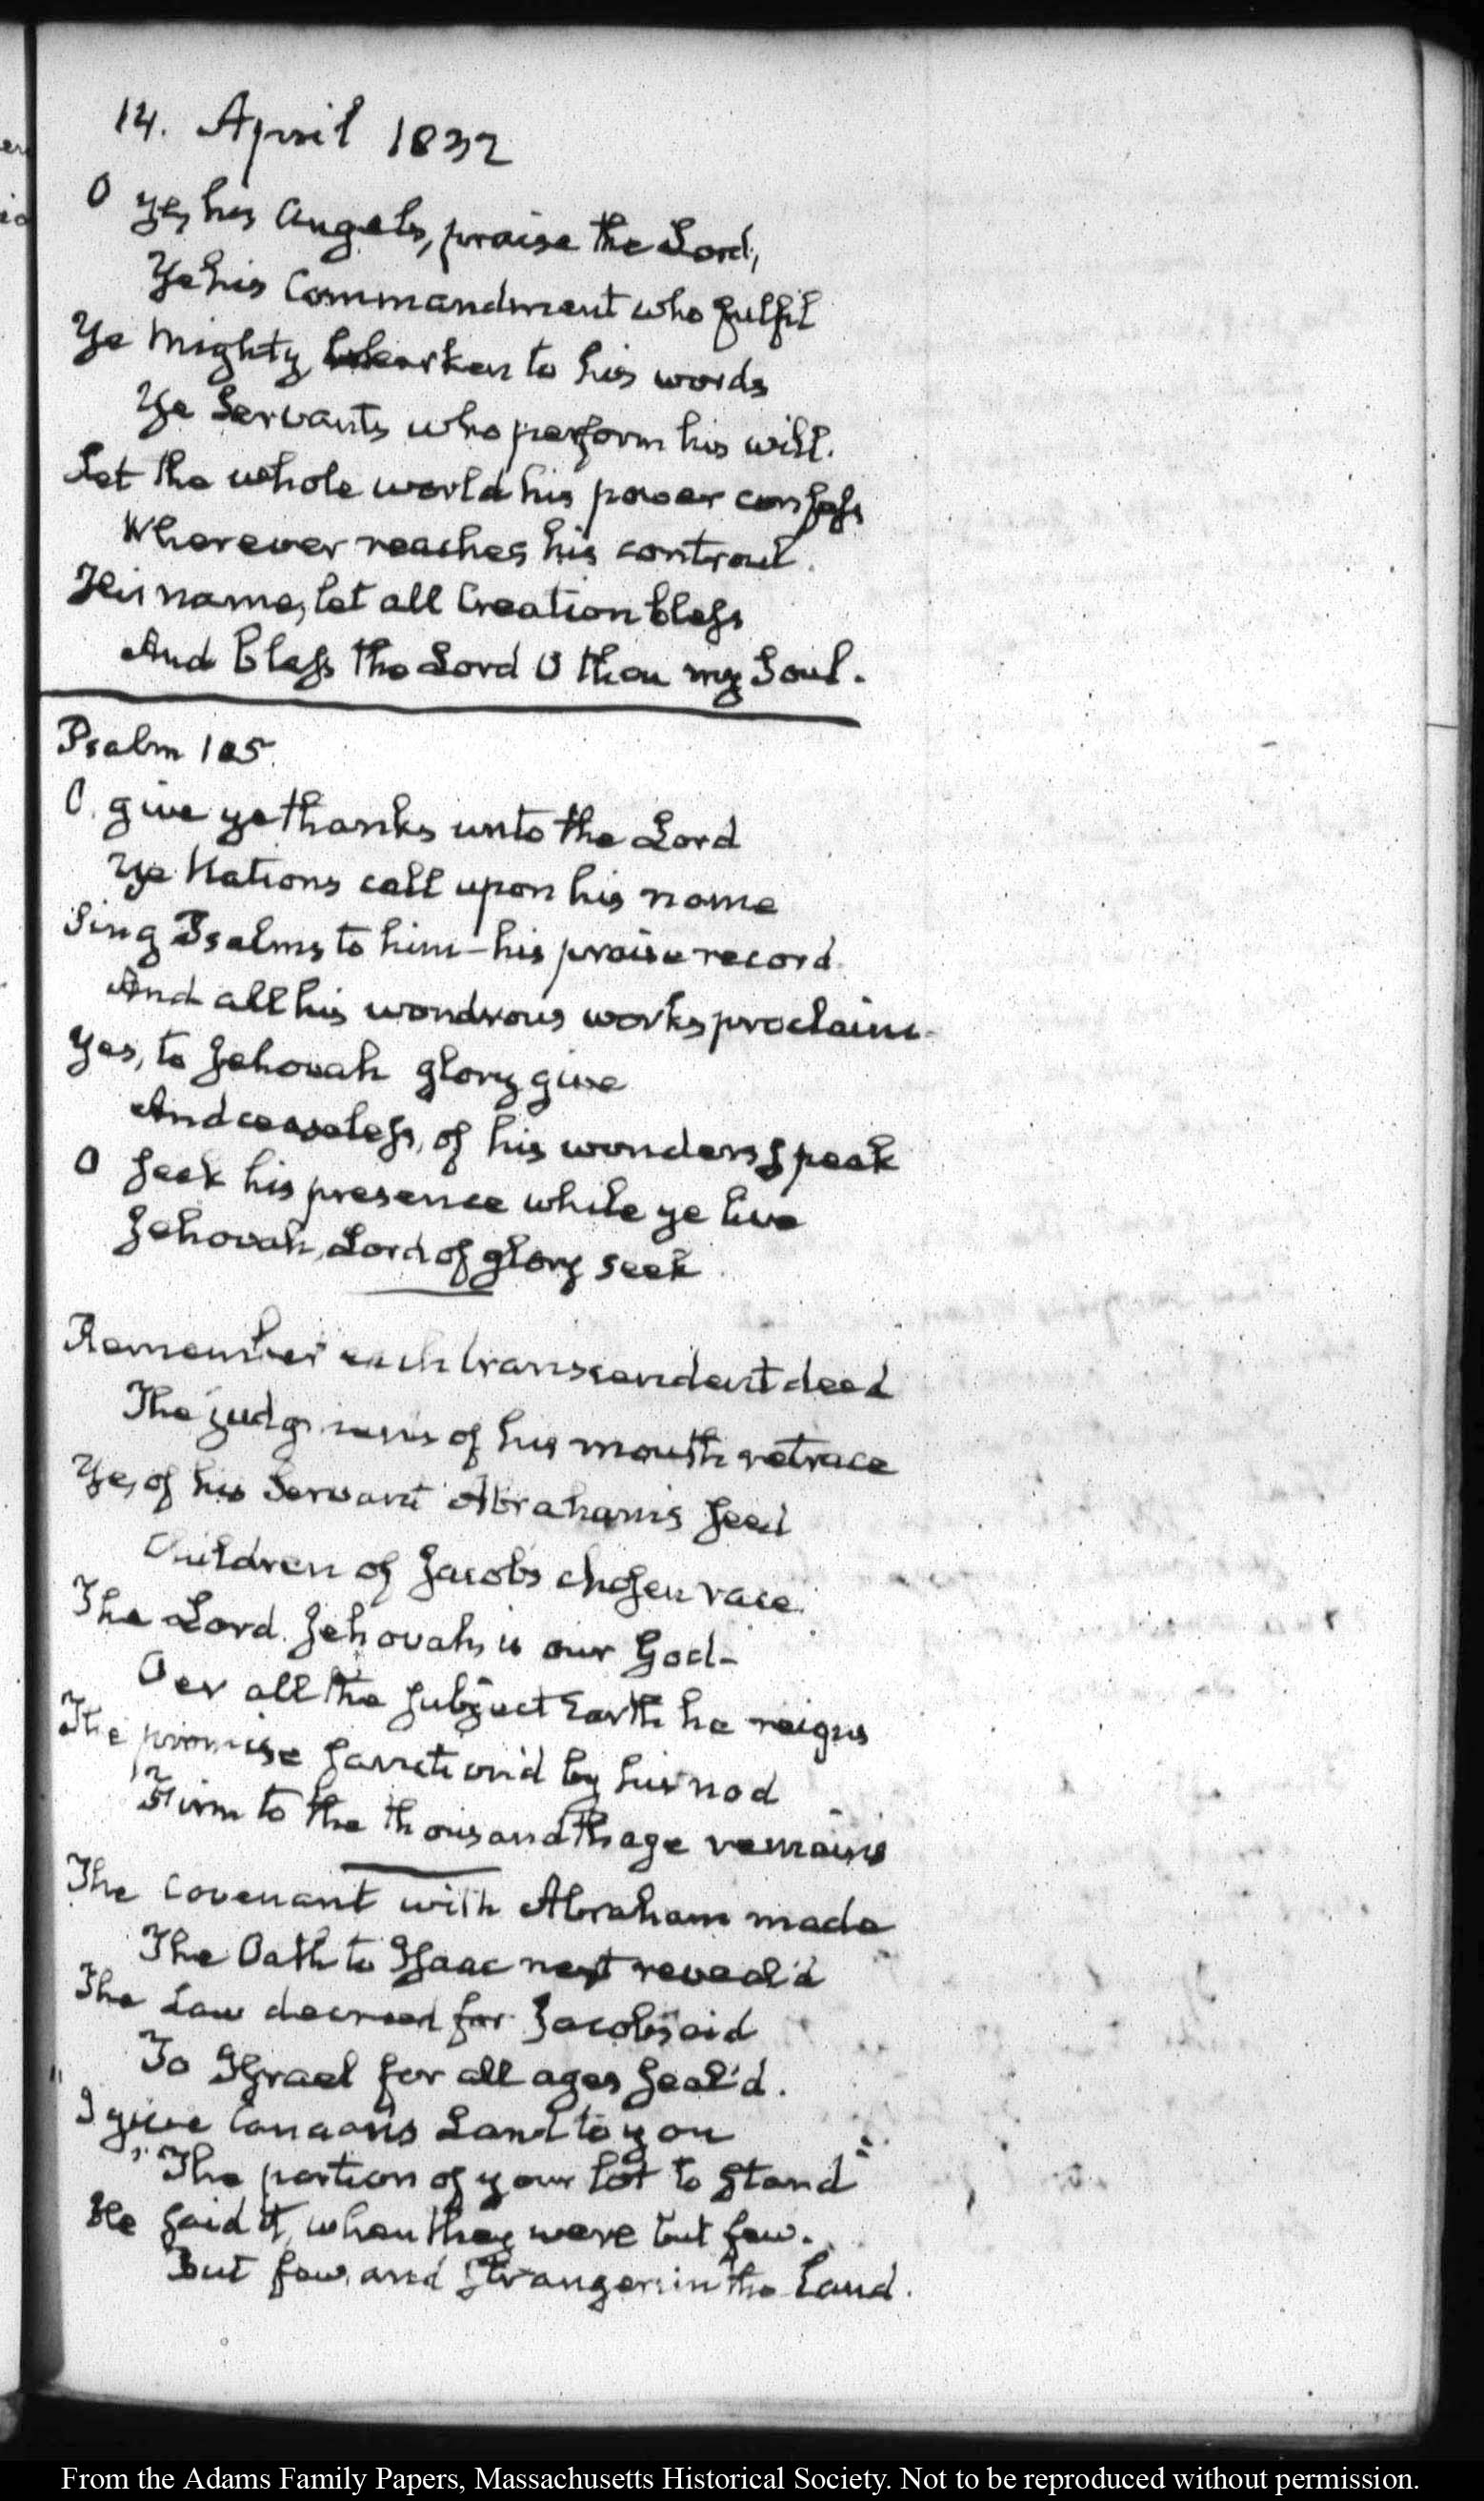 14. April 1832
O ye, his Angels, praise the Lord,
Ye his Commandment who fulfil
Ye Mighty, hearken to his words
Ye Servants who perform his will.
Let the whole world his power confess
Wherever reaches his controul.
His name, let all Creation bless
And bless the Lord O thou my Soul.
Psalm 105.
O. give ye thanks unto the Lord
Ye Nations call upon his name
Sing Psalms to him — his praise record.
And all his wondrous works proclaim.
Yes, to Jehovah glory give
And ceaseless, of his wonders speak
O seek his presence while ye live
Jehovah, Lord of glory seek.
Remember each transcendent deed
The judgments of his mouth retrace
Ye, of his Servant Abraham's seed
Children of Jacob's chosen race.
The Lord Jehovah is our God—
Oer all the subject Earth he reigns
The promise sanction'd by his nod
Firm to the thousandth age remains
The covenant with Abraham made
The Oath to Isaac next reveal'd
The Law decreed for Jacob's aid
To Israel for all ages seal'd.
"I give Canaan's Land to you
"The portion of your lot to stand"
He said it, when they were but few.
But few, and strangers in the Land.
er
io
From the Adams Family Papers, Massachusetts Historical Society. Not to be reproduced without permission.